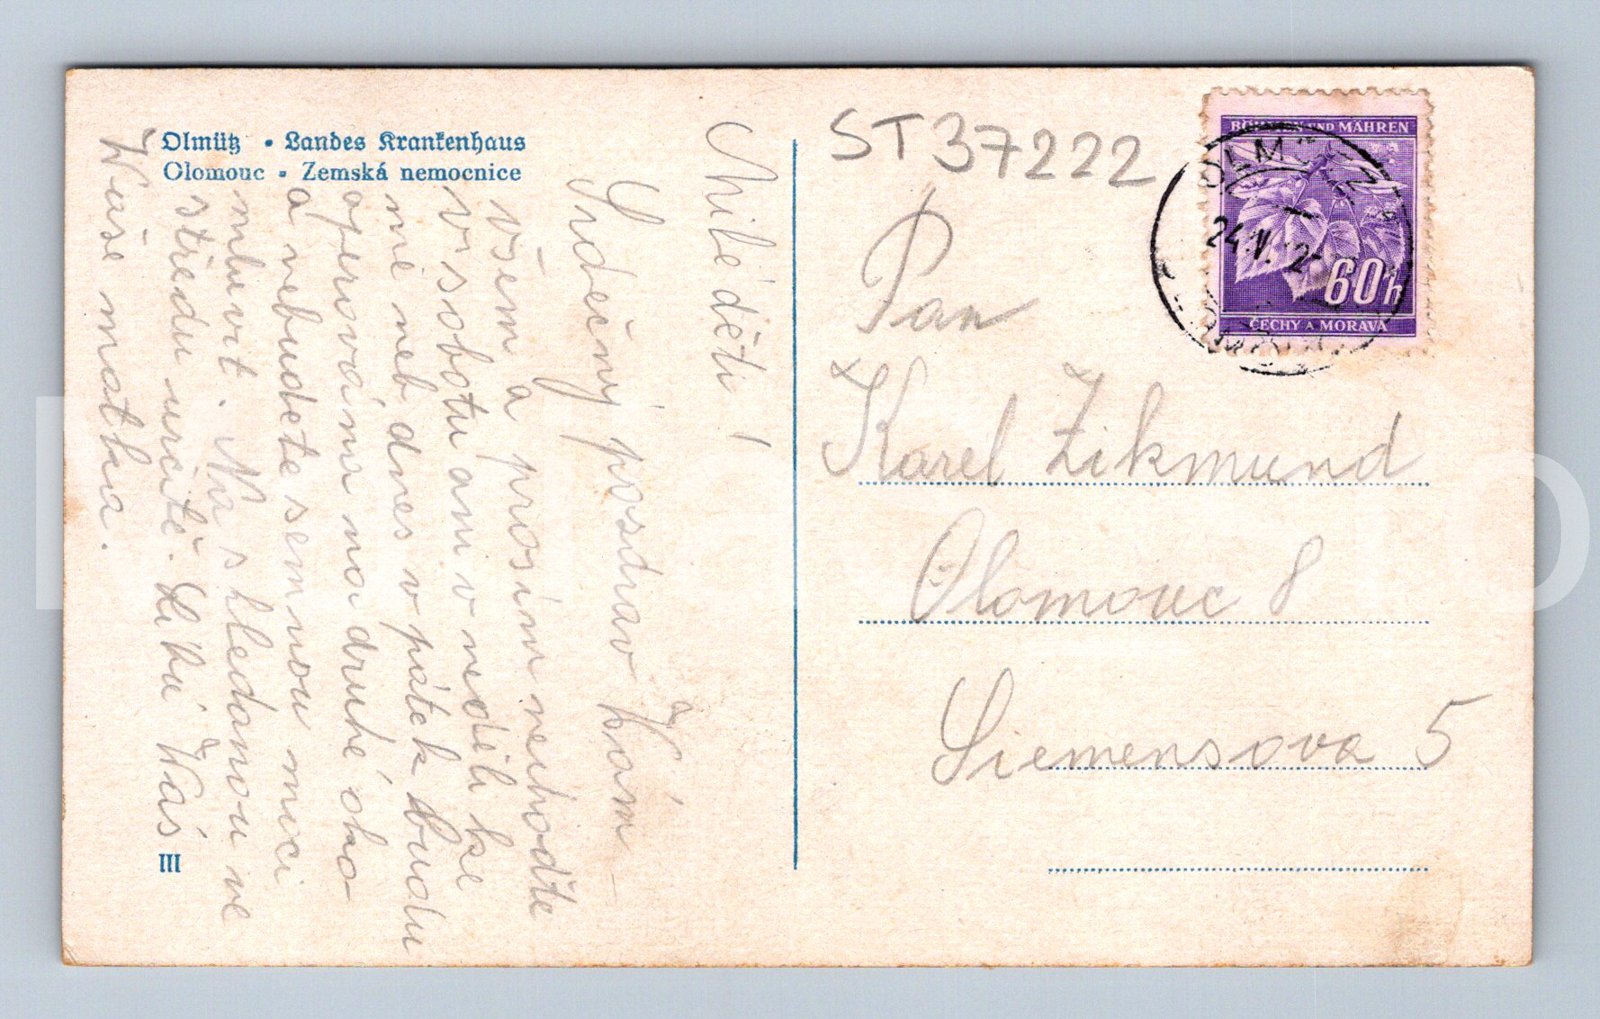 Olmütz • Landes Krankenhaus
Olomouc • Zemská nemocnice
Milé děti!
Srdečný pozdrav Vám
všem a prosím nechoďte
v sobotu ani v neděli ke
mě neb dnes v pátek budu
operována na druhé oko
a nebudete semnou moci
mluvit. Na shledanou ve
středu určitě. Líbá Vás
Vaše matka.
III
ST37222
BÖHMEN UND MÄHREN
60h
ČECHY A MORAVA
OLMÜTZ
24.V.
Pan
Karel Zikmund
Olomouc 8
Siemensova 5